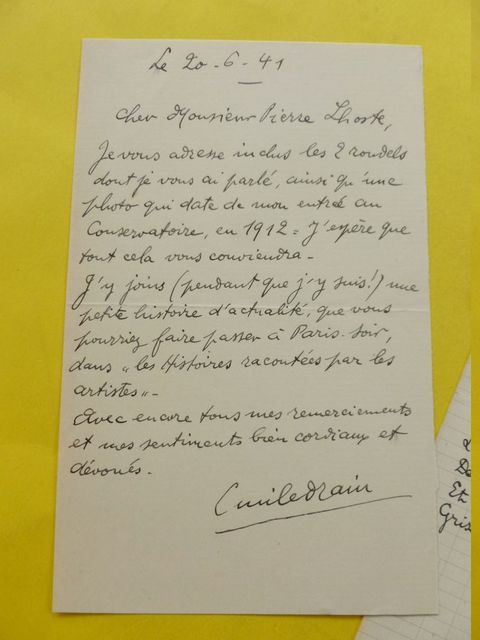 Le 20-6-41
Cher Monsieur Pierre Lhoste,
Je vous adresse inclus les 2 rondels
dont je vous ai parlé, ainsi qu'une
photo qui date de mon entrée au
Conservatoire, en 1912 = J'espère que
tout cela vous conviendra -
J'y joins (pendant que j'y suis!) une
petite histoire d'actualité, que vous
pourriez faire passer à Paris-Soir,
dans "les Histoires racontées par les
artistes" -
Avec encore tous mes remerciements
et mes sentiments bien cordiaux et
dévoués -
Emile Drain
De
Et
Gris